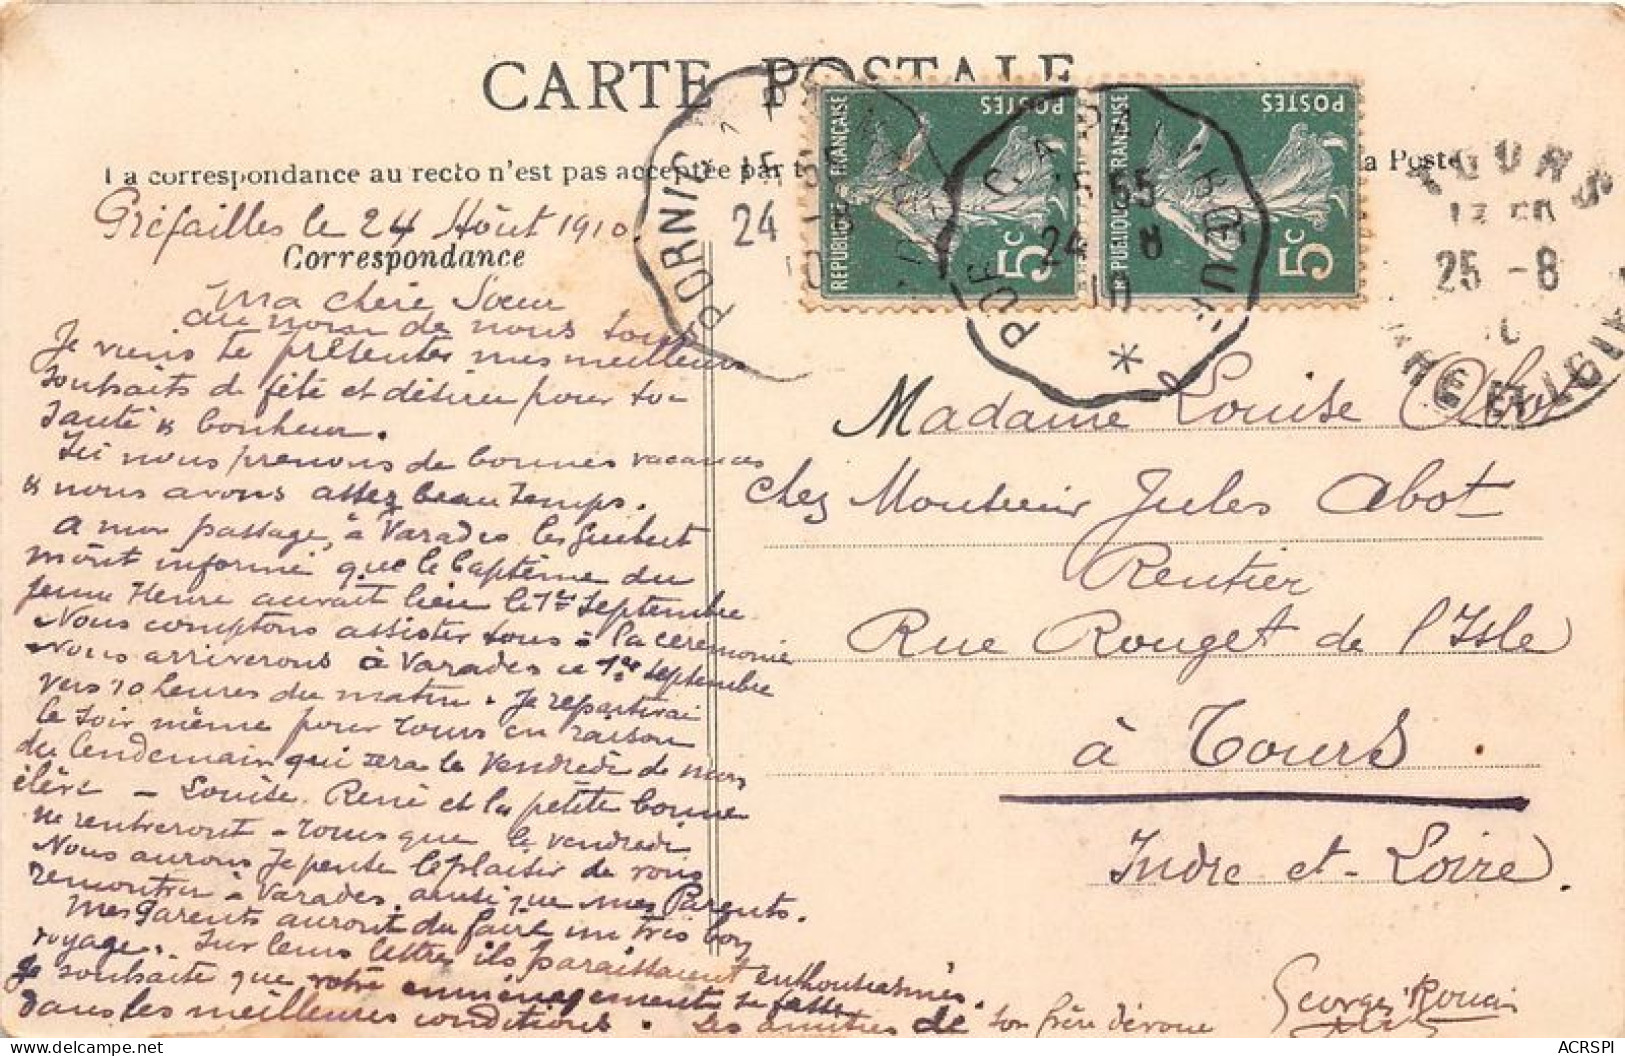 CARTE POSTALE
La correspondance au recto n'est pas acceptée par t
a Poste
Préfailles le 24 Août 1910
Correspondance
Ma chère Sœur
au nom de nous tous
Je viens te présenter mes meilleurs
souhaits de fête et désirer pour toi
santé & bonheur.
Ici nous prenons de bonnes vacances
& nous avons assez beau temps.
A mon passage, à Varades les Guibert
m'ont informé que le baptême du
jeune Henri aurait lieu le 1er septembre
Nous comptons assister tous à la cérémonie
Nous arriverons à Varades ce 1er septembre
vers 10 heures du matin. Je repartirai
le soir même pour Tours en raison
du lendemain qui sera le Vendredi de mon
élève - Louise René et la petite bonne
ne rentreront - Tours que le vendredi
Nous aurons je pense le plaisir de vous
rencontrer à Varades ainsi que mes Parents.
Mes Parents auront du faire un très bon
voyage. Sur leurs lettres ils paraissaient enthousiasmés.
Je souhaite que votre emménagement se fasse
dans les meilleures conditions. Les amitiés de ton frère dévoué
Georges
REPUBLIQUE FRANÇAISE
POSTES
5c
REPUBLIQUE FRANÇAISE
POSTES
5c
PORNIC
24
24 8
10
TOURS
25 -8
Madame Louise Abot
chez Monsieur Jules Abot
Rentier
Rue Rouget de l'Isle
à Tours
Indre et-Loire.
ACRSPI